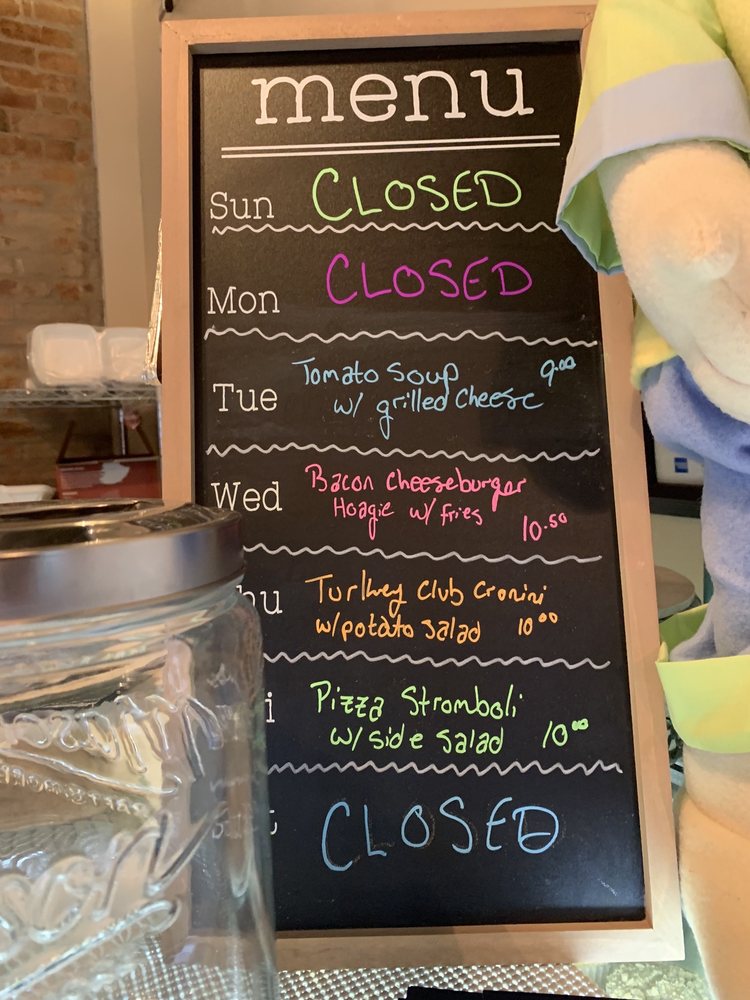 menu
Sun CLOSED
Mon CLOSED
Tue Tomato Soup 9.00
w/ grilled cheese
Wed Bacon cheeseburger
Hoagie w/ fries
10.50
hu Turkey Club Cronini
w/potato salad 10.00
i Pizza Stromboli
w/ side salad 10.00
t CLOSED